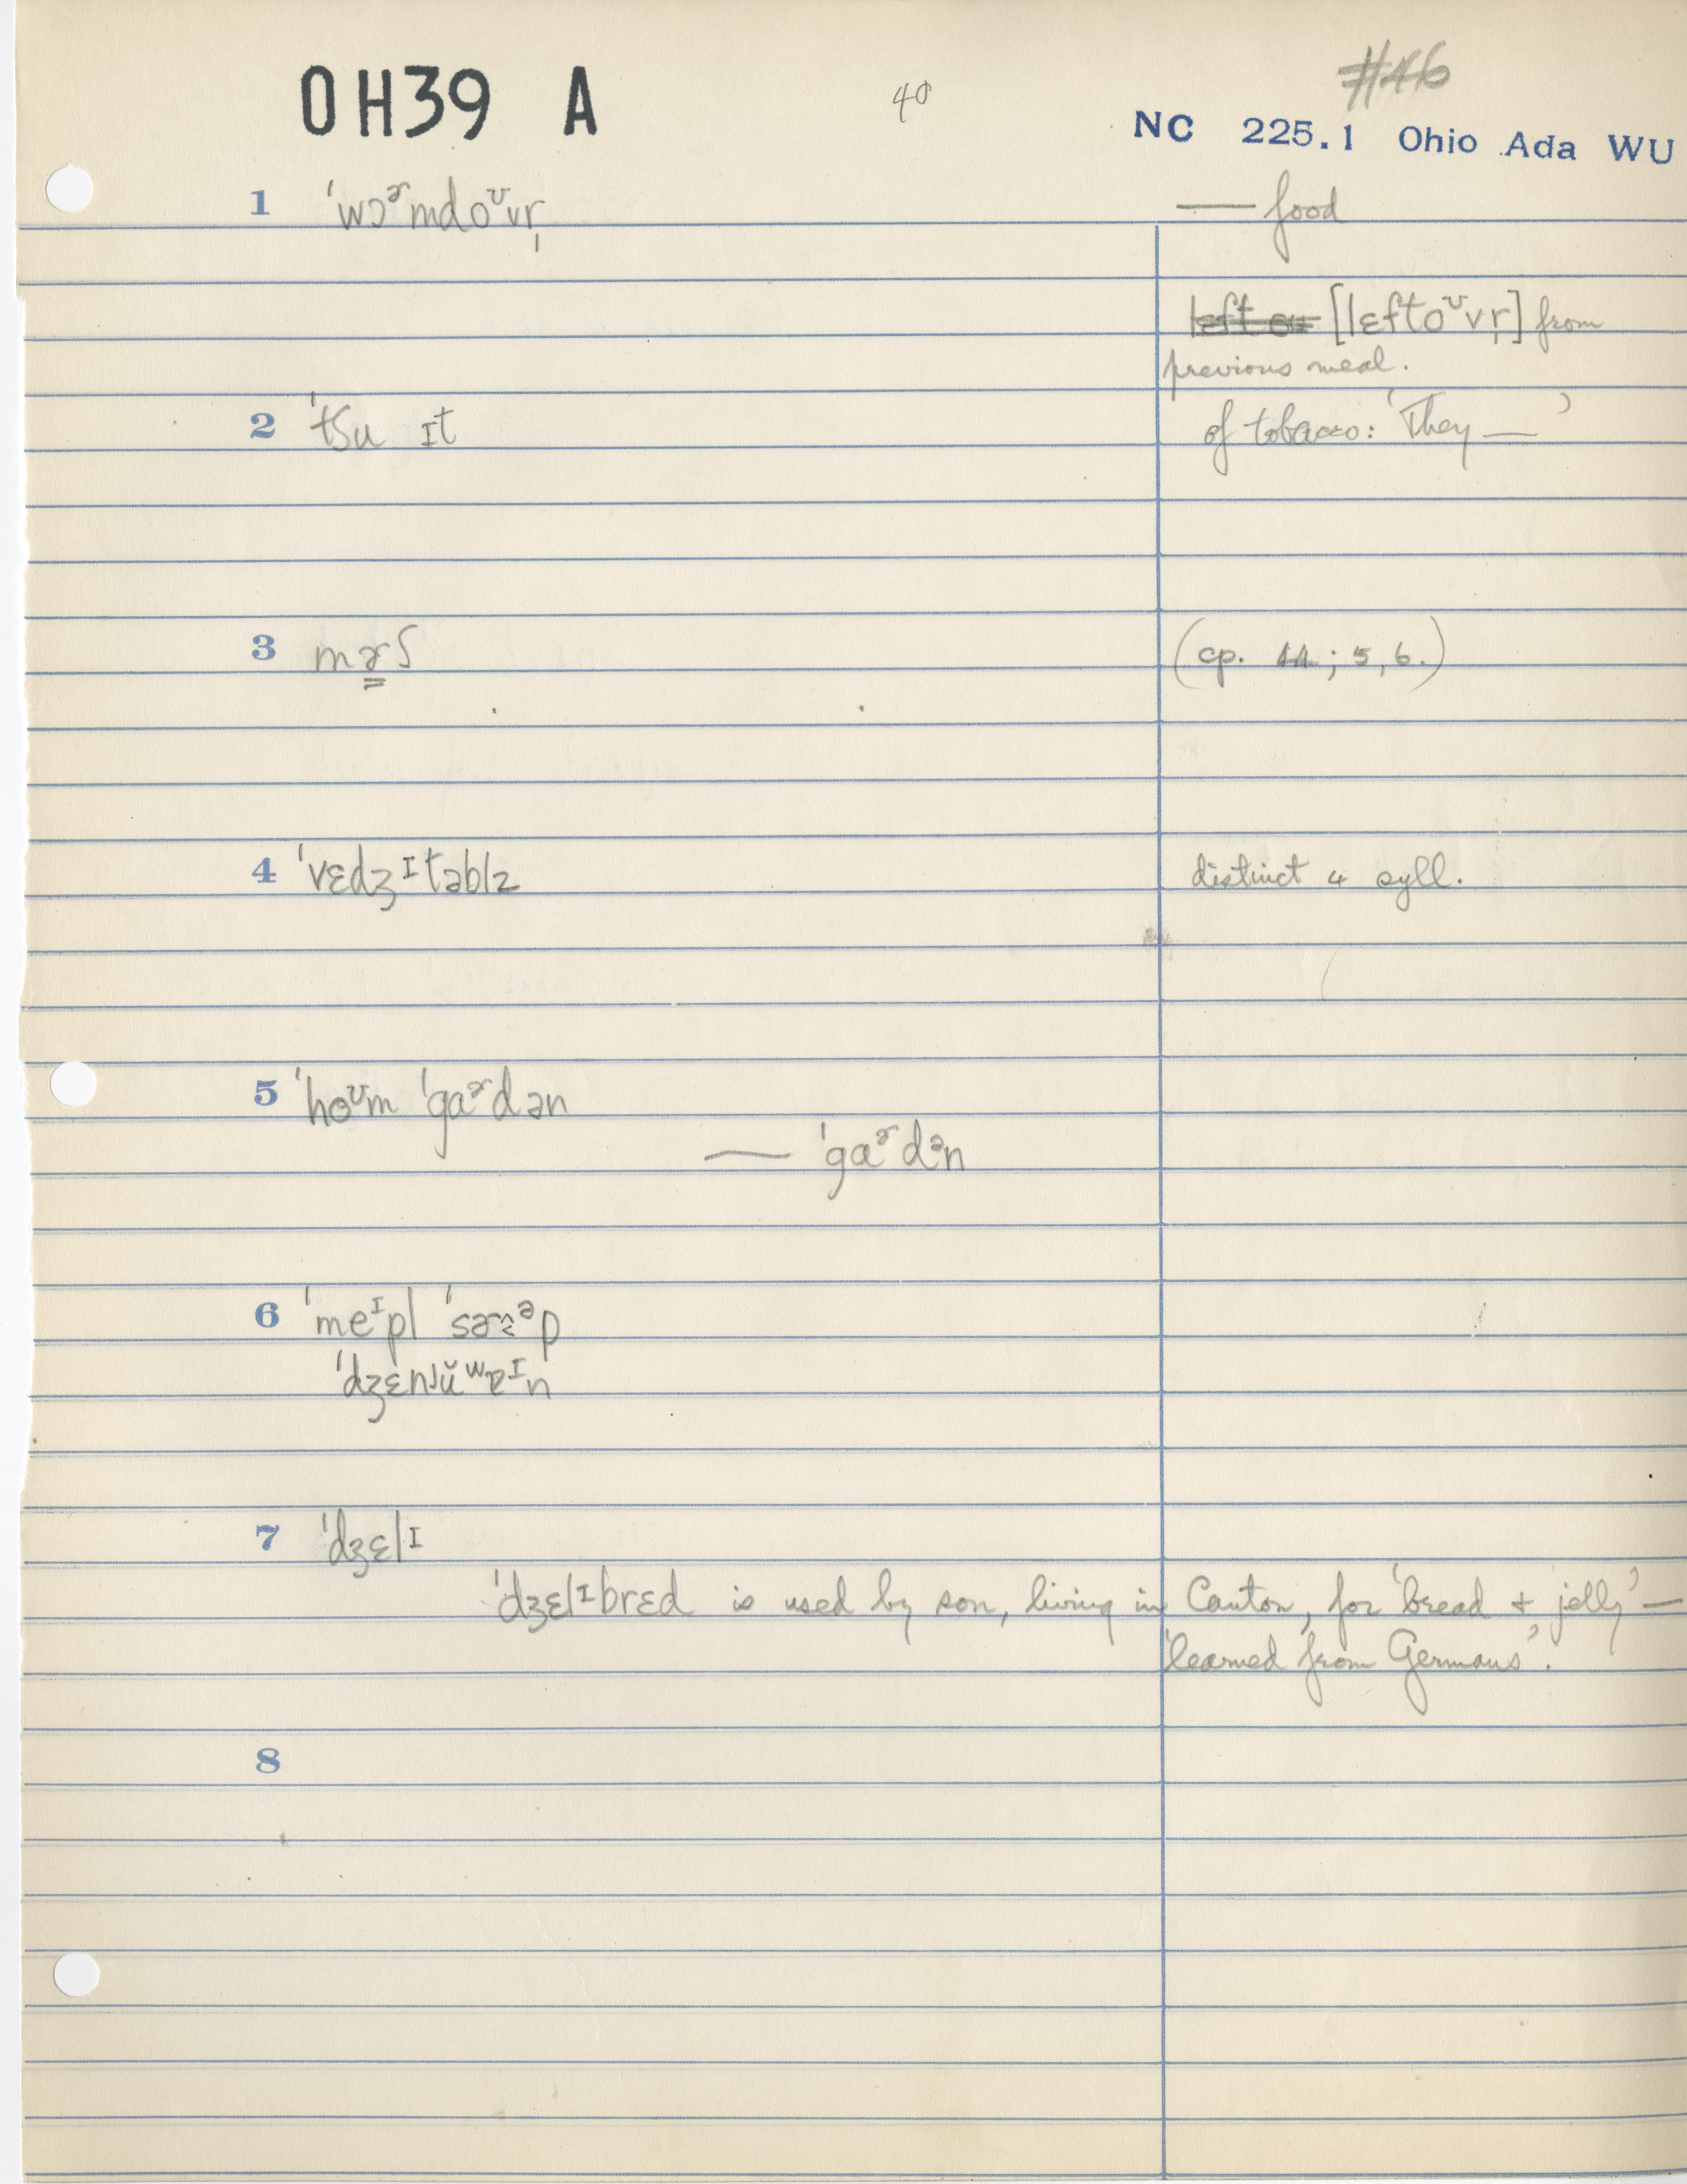 OH39 A 40 #46
NC 225.1 Ohio Ada WU
1 ˈwɔɚmdoʊvr̩ — food
[lɛftoʊvr̩] from
previous meal.
2 ˈtʃu ɪt of tobacco: 'They —'
3 mɚʃ (cp. 44; 5, 6.)
4 ˈvɛdʒɪtəblz distinct 4 syll.
5 ˈhoʊm ˈgaɚdən
— ˈgaɚdᵊn
6 ˈmeɪpl
7 ˈdʒɛlɪ
ˈdʒɛlɪbrɛd is used by son, living in Canton, for 'bread & jelly' —
'learned from Germans'.
8